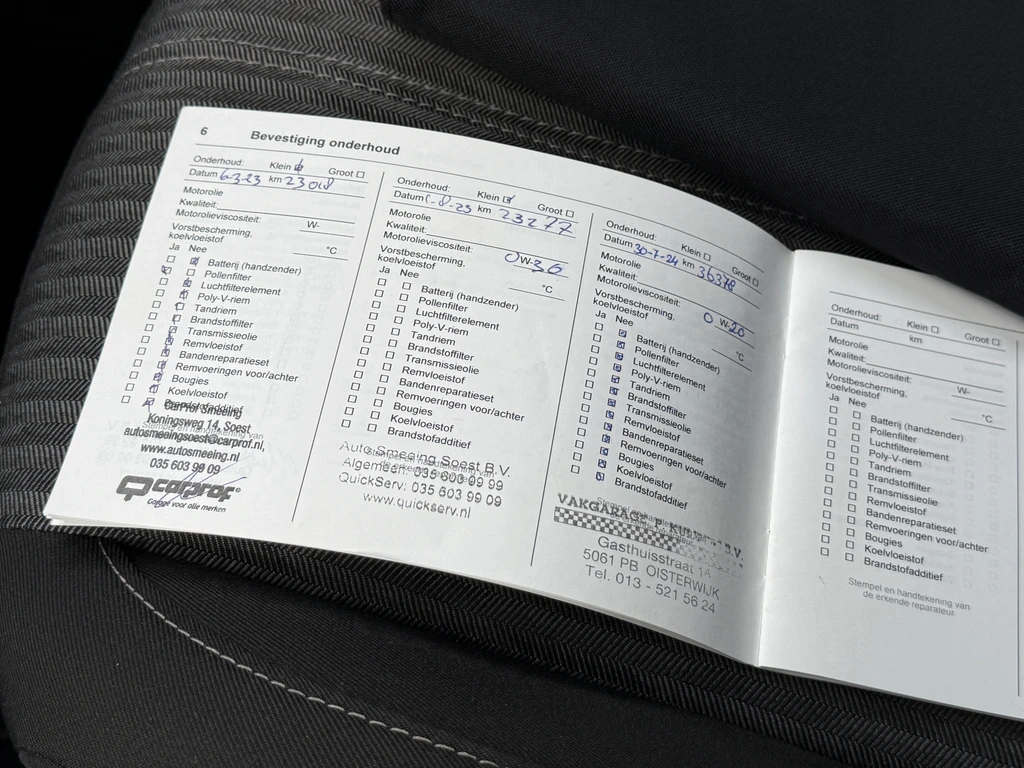 6 Bevestiging onderhoud
Onderhoud: Klein Groot
Datum 6-3-23 km 23018
Motorolie
Kwaliteit:
Motorolieviscositeit: W-
Vorstbescherming,
koelvloeistof °C
Ja Nee
Batterij (handzender)
Pollenfilter
Luchtfilterelement
Poly-V-riem
Tandriem
Brandstoffilter
Transmissieolie
Remvloeistof
Bandenreparatieset
Remvoeringen voor/achter
Bougies
Koelvloeistof
Brandstofadditief
CarProf Smeeing
Koningsweg 14, Soest
Stempel en handtekening van
autosmeeingsoest@carprof.nl,
www.autosmeeing.nl
035 603 99 09
carprof
Garage voor alle merken
Onderhoud: Klein Groot
Datum -8-23 km 23277
Motorolie
Kwaliteit:
Motorolieviscositeit: 0W-30
Vorstbescherming,
koelvloeistof °C
Ja Nee
Batterij (handzender)
Pollenfilter
Luchtfilterelement
Poly-V-riem
Tandriem
Brandstoffilter
Transmissieolie
Remvloeistof
Bandenreparatieset
Remvoeringen voor/achter
Bougies
Koelvloeistof
Brandstofadditief
Auto Smeeing Soest B.V.
Stempel en handtekening van
Algemeen: 035 603 99 99
de erkende reparateur
QuickServ: 035 603 99 09
www.quickserv.nl
Onderhoud: Klein Groot
Datum 30-7-24 km 36378
Motorolie
Kwaliteit:
Motorolieviscositeit: 0 W-20
Vorstbescherming,
koelvloeistof °C
Ja Nee
Batterij (handzender)
Pollenfilter
Luchtfilterelement
Poly-V-riem
Tandriem
Brandstoffilter
Transmissieolie
Remvloeistof
Bandenreparatieset
Remvoeringen voor/achter
Bougies
Koelvloeistof
Brandstofadditief
Stempel en
VAKGARAGE P. B.V.
Gasthuisstraat 1A
5061 PB OISTERWIJK
Tel. 013 - 521 56 24
Onderhoud: Klein Groot
Datum km
Motorolie
Kwaliteit:
Motorolieviscositeit: W-
Vorstbescherming,
koelvloeistof °C
Ja Nee
Batterij (handzender)
Pollenfilter
Luchtfilterelement
Poly-V-riem
Tandriem
Brandstoffilter
Transmissieolie
Remvloeistof
Bandenreparatieset
Remvoeringen voor/achter
Bougies
Koelvloeistof
Brandstofadditief
Stempel en handtekening van
de erkende reparateur